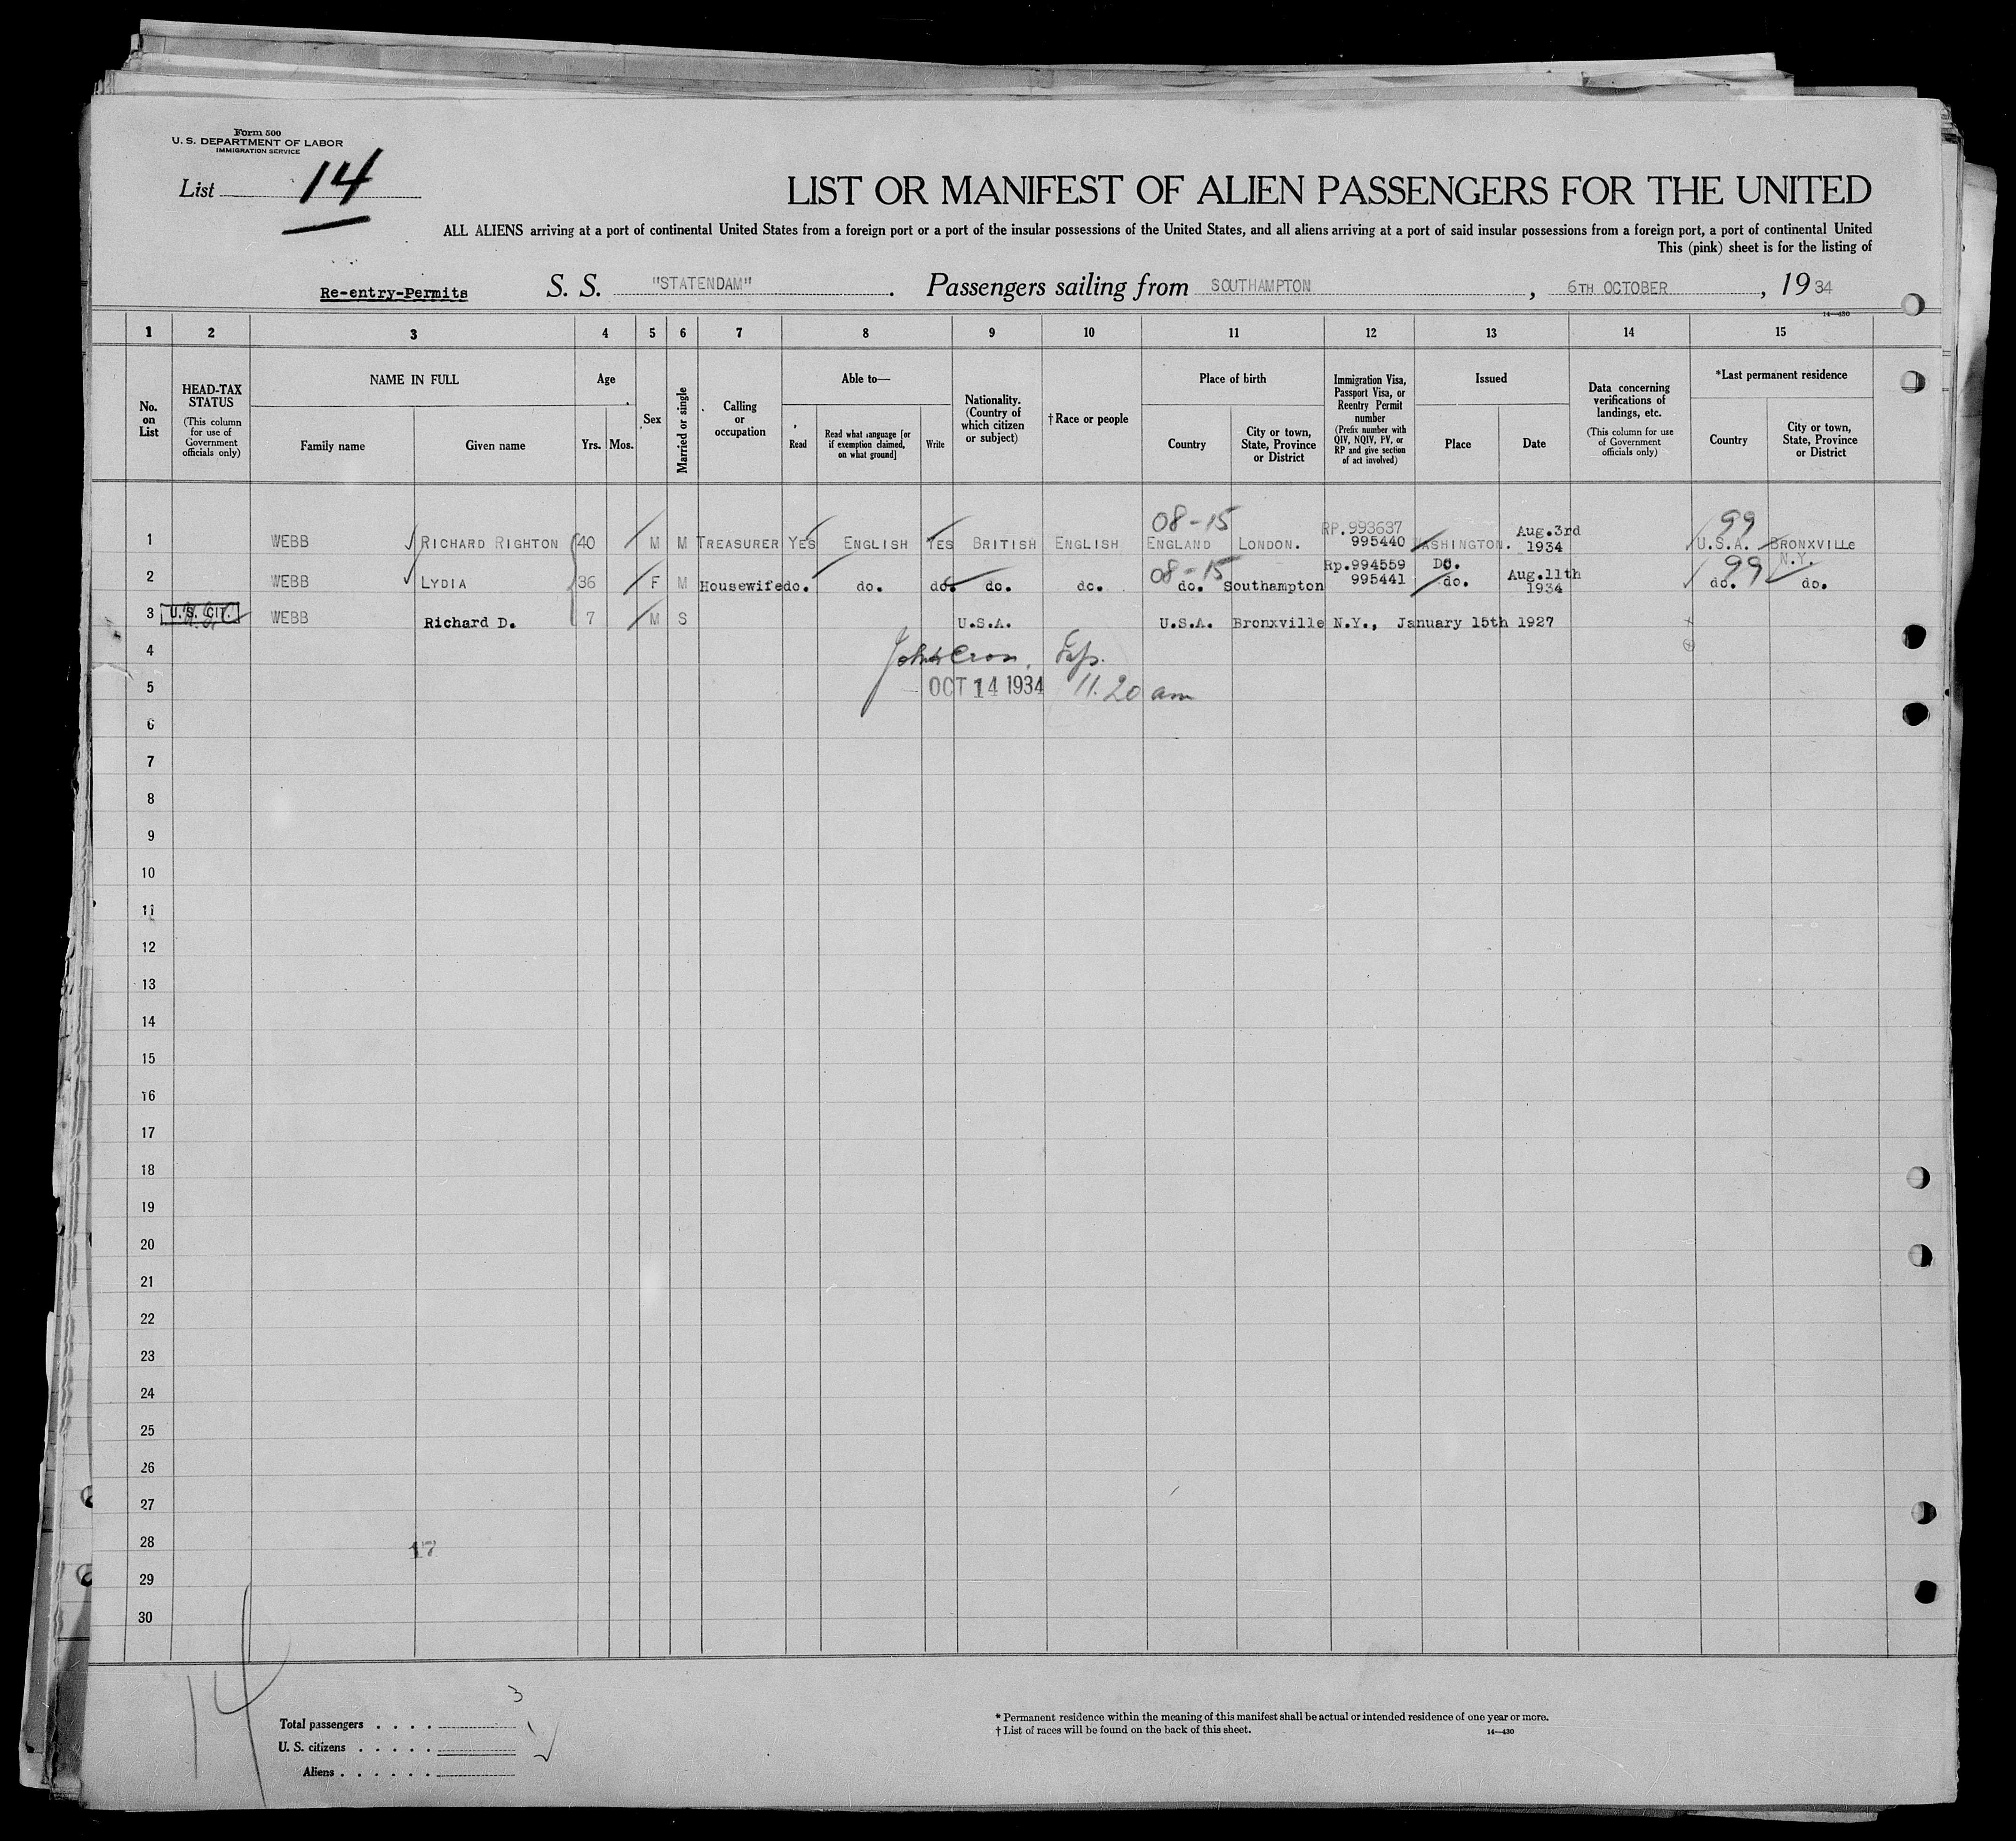 Form 500
U. S. DEPARTMENT OF LABOR
IMMIGRATION SERVICE
List 14
LIST OR MANIFEST OF ALIEN PASSENGERS FOR THE UNITED
ALL ALIENS arriving at a port of continental United States from a foreign port or a port of the insular possessions of the United States, and all aliens arriving at a port of said insular possessions from a foreign port, a port of continental United
This (pink) sheet is for the listing of
Re-entry-Permits S. S. "STATENDAM". Passengers sailing from SOUTHAMPTON, 6TH OCTOBER, 1934
14—430
1 2 3 4 5 6 7 8 9 10 11 12 13 14 15
No. on List
HEAD-TAX STATUS
(This column for use of Government officials only)
NAME IN FULL
Family name Given name
Age
Yrs. Mos.
Sex
Married or single
Calling or occupation
Able to—
Read
Read what language [or if exemption claimed, on what ground]
Write
Nationality. (Country of which citizen or subject)
† Race or people
Place of birth
Country
City or town, State, Province or District
Immigration Visa, Passport Visa, or Reentry Permit number
(Prefix number with QIV, NQIV, PV, or RP and give section of act involved)
Issued
Place Date
Data concerning verifications of landings, etc.
(This column for use of Government officials only)
*Last permanent residence
Country
City or town, State, Province or District
08-15 99
1 WEBB RICHARD RIGHTON 40 M M TREASURER YES ENGLISH YES BRITISH ENGLISH ENGLAND LONDON. RP.993637 995440 WASHINGTON. DC. Aug.3rd 1934 U.S.A. BRONXVILLE N.Y.
08-15 99
2 WEBB LYDIA 36 F M Housewife do. do. do. do. do. do. Southampton Rp.994559 995441 do. Aug.11th 1934 do. do.
3 U.S. CIT. WEBB Richard D. 7 M S U.S.A. U.S.A. Bronxville N.Y., January 15th 1927
4
5 OCT 14 1934 11.20 am
6
7
8
9
10
11
12
13
14
15
16
17
18
19
20
21
22
23
24
25
26
27
28 17
29
30
14
3
Total passengers . . . .
U. S. citizens . . . . .
Aliens . . . . . .
* Permanent residence within the meaning of this manifest shall be actual or intended residence of one year or more.
† List of races will be found on the back of this sheet.
14—430